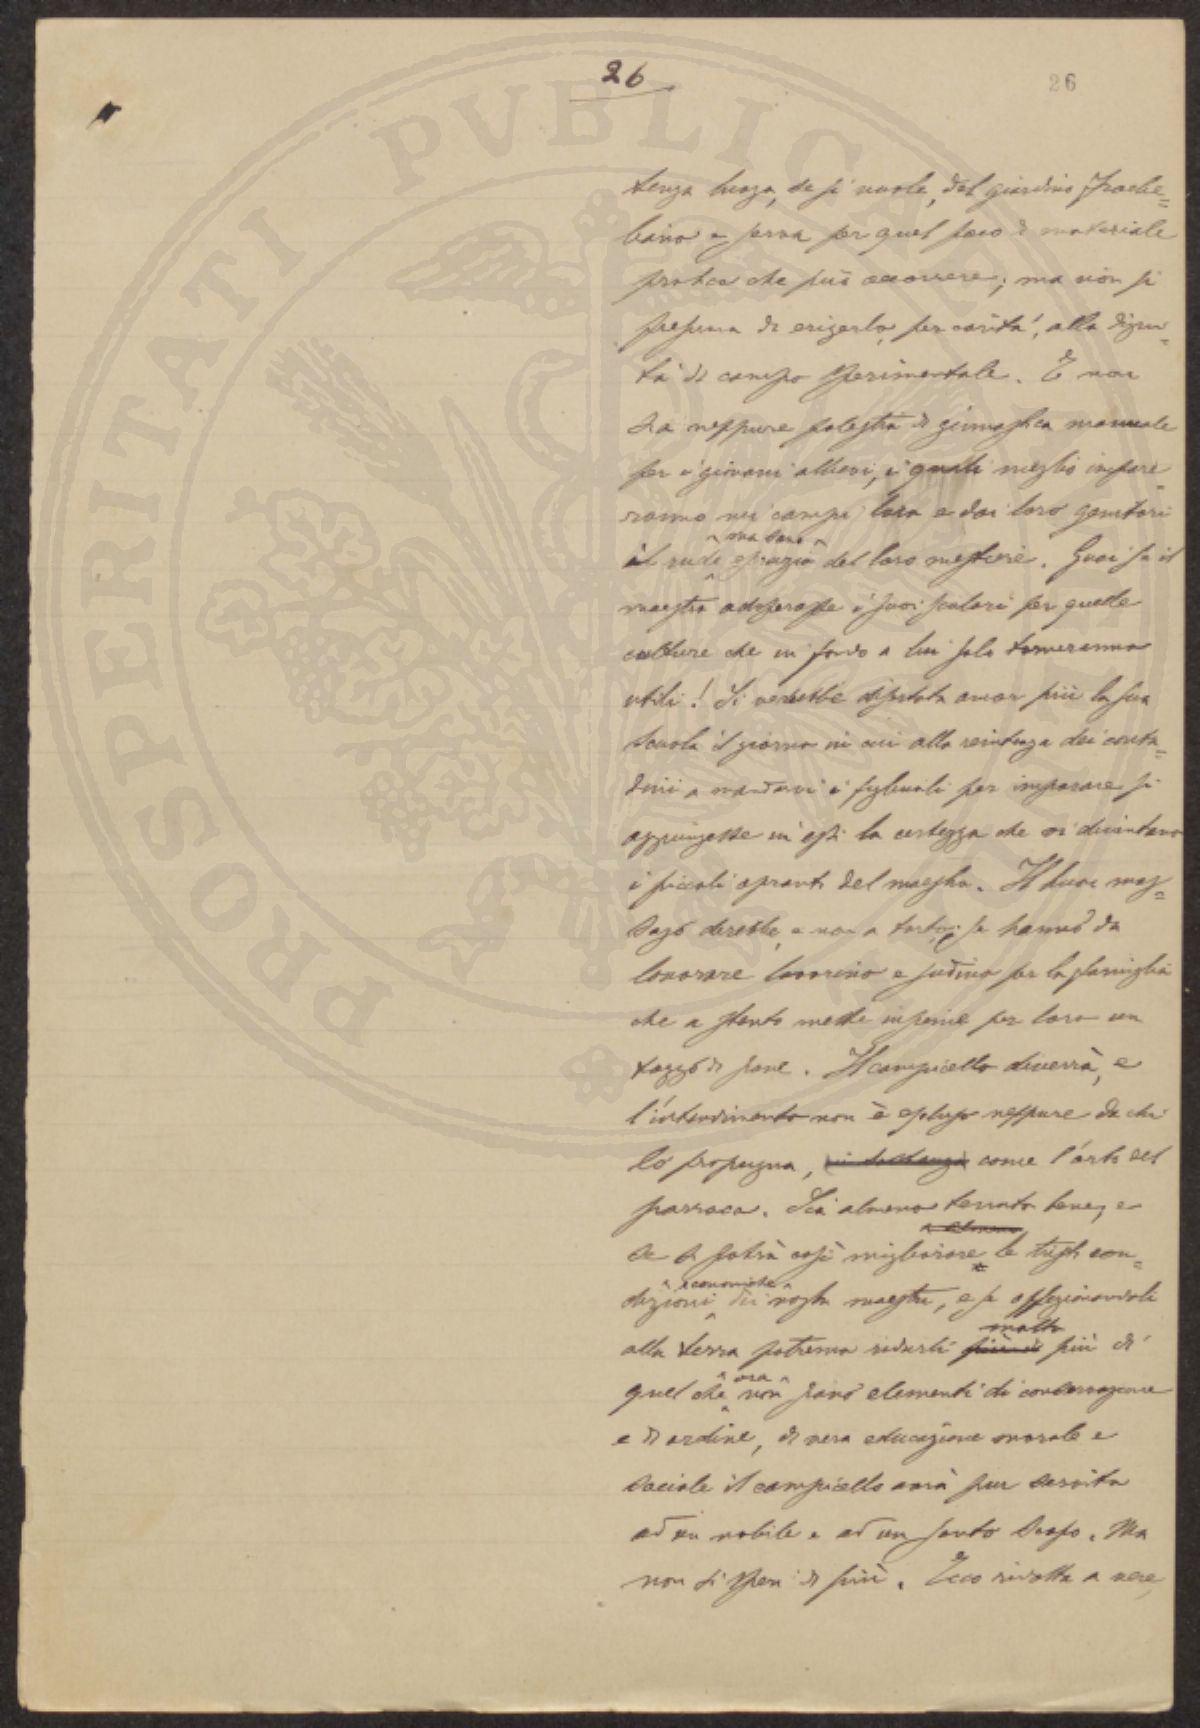 26
26
tenga luogo, se si vuole, del giardino Froebe=
liano e serva per quel poco di materiale
pratico che può occorrere; ma non si
presuma di erigerlo, per carità!, alla digni=
tà di campo sperimentale. E non
sia neppure palestra di ginnastica manuale
per i giovani allievi, i quali meglio impare=
ranno nei campi loro e dai loro genitori
^ ma sano ^
il rude esercizio del loro mestiere. Guai se il
maestro adoperasse i suoi scolari per quelle
culture che in fondo a lui solo torneranno
utili! Si vedrebbe disertata ancor più la sua
scuola il giorno in cui alla reniten­za dei conta=
dini a mandarvi i figliuoli per imparare si
aggiungesse in essi la certezza che vi diventano
i piccoli opranti del maestro. Il buon mas=
sajo direbbe, e non a torto: se hanno da
lavorare lavorino e sudino per la famiglia
che a stento mette insieme per loro un
tozzo di pane. Il campicello diverrà, e
l'intendimento non è escluso neppure da chi
lo propugna, in sostanza come l'orto del
parroco. Sia almeno tenuto bene, e
se si potrà così migliorare le tristi con=
^ economiche ^
dizioni dei nostri maestri, e se affezionandoli
molto
alla terra potremo ridurli più di più di
^ ora ^
quel che non siano elementi di conservazione
e di ordine, di vera educazione morale e
sociale il campicello avrà pur servito
ad un nobile e ad un santo scopo. Ma
non si speri di più. Ecco ridotta a vere,
PROSPERITATI PVBLICAE